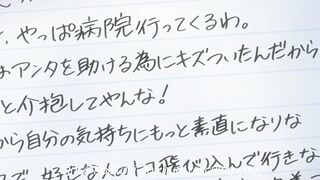 、やっぱ病院行ってくるわ。
アンタを助ける為にキズついたんだから
と介抱してやんな！
から自分の気持ちにもっと素直になりな
好きな人のトコ飛び込んで行きな